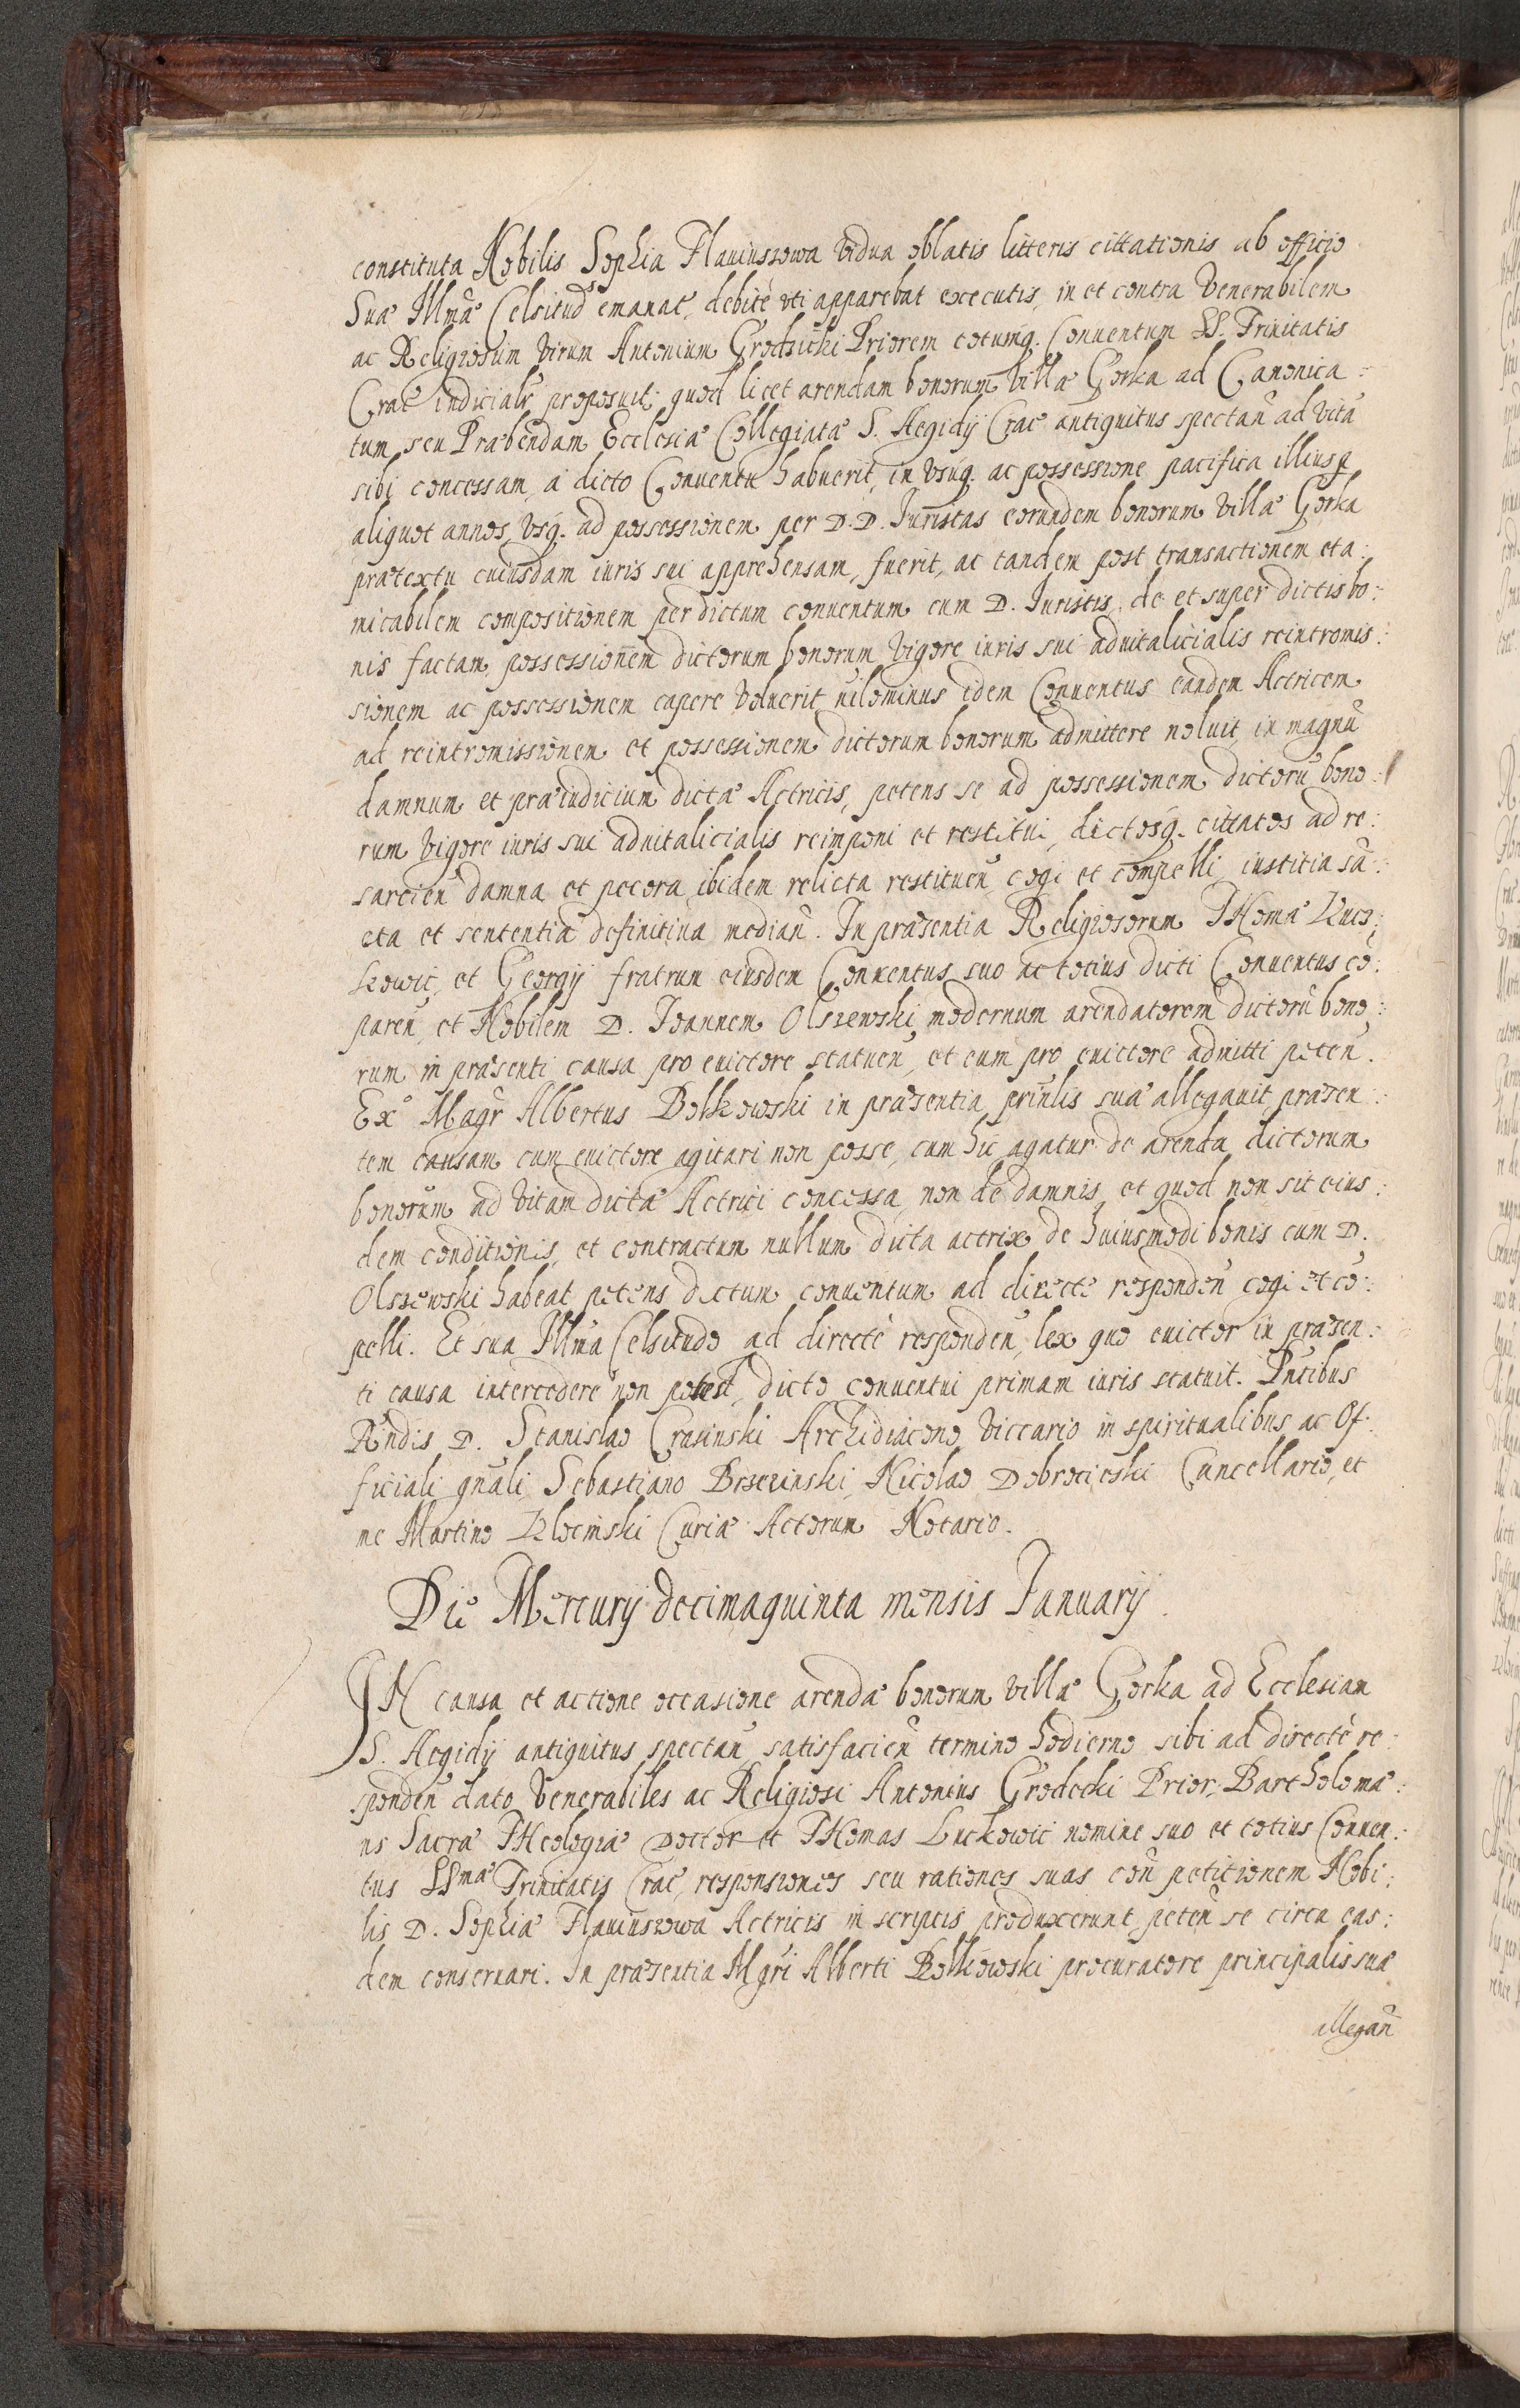 constituta Nobilis Sophia Flauiuszowa vidua oblatis litteris cittationis ab officio
Suæ Illmæ Celsituds emanat, debitè vti apparebat executis, in et contra Venerabilem
ac Religiosum virum Antonium Grodzicki Priorem totumq. Conuentum SS. Trinitatis
Crac iudicialr proposuit: quod licet arendam bonorum villæ Gorka ad Canonica:
tum seu Præbendam Ecclesiæ Collegiatæ S. Aegidij Crac antiquitus spectan ad vitã
sibi concessam, à dicto Conuentu habuerit, in vsúq. ac possessione pacifica illius p
aliquot annos, vsq. ad possessionem per D. D. Iuristas eorundem bonorum villæ Gorka
prætextu cuiusdam iuris sui apprehensam, fuerit, ac tandem post transactionem et a:
micabilem compositionem per dictum conuentum cum D. Iuristis, de et super dictis bo:
nis factam, possessionem dictorum bonorum vigore iuris sui aduitalicialis reintromis:
sionem ac possessionem capere voluerit nilominus idem Conuentus eandem Actricem
ad reintromissionem et possessionem dictorum bonorum admittere noluit, in magnũ
damnum et præiudicium dictæ Actricis, petens se ad possessionem dictorũ bono:
rum vigore iuris sui aduitalicialis reimponi et restitui, dictosq. cittatos ad re:
sarcien damna et pecora ibidem relicta restituen, cogi et compelli, iustitia sã:
cta et sententia definitiua median. In præsentia Religiosorum Thomæ Luco:
kowic, et Georgij fratrum eiusdem Conuentus suo ac totius dicti Conuentus cõ:
paren, et Nobilem D. Ioannem Olszewski modernum arendatorem dictorũ bono:
rum in præsenti causa pro euictore statuen, et eum pro euictore admitti peten.
Exº Magr Albertus Bolkowski in præsentia prinlis suæ allegauit præsen:
tem causam cum euictore agitari non posse, cum hic agatur de arenda dictorum
bonorum ad vitam dictæ Actrici concessa, non de damnis, et quod non sit eius:
dem conditionis, et contractum nullum dicta actrix de huiusmodi bonis cum D.
Olszewski habeat, petens dictum conuentum ad directè responden cogi et cõ:
pelli. Et sua Illma Celsitudo ad directè responden, lex quo euictor in præsen:
ti causa intercedere non potest, dicto conuentui primam iuris statuit. Pntibus
Rndis D. Stanislao Crasinski Archidiacono Viccario in spiritualibus ac Of:
ficiali gnali, Sebastiano Brzezinski, Nicolao Dobrocieski Cancellario, et
me Martino Izlocinski Curiæ Actorum Notario.
Die Mercurij decimaquinta mensis Ianuarij.
IN causa et actione occasione arendæ bonorum villæ Gorka ad Ecclesiam
S. Aegidij antiquitus spectan, satisfacien termino hodierno sibi ad directè re:
sponden dato, Venerabiles ac Religiosi Antonius Grodecki Prior, Bartholomæ:
us Sacræ Theologiæ Doctor et Thomas Luckowic nomine suo et totius Conuen:
tus SSmæ Trinitatis Crac, responsiones seu rationes suas con petitionem Nobi:
lis D. Sophiæ Flauiuszowa Actricis in scriptis produxerunt, peten se circa eas:
dem conseruari. In præsentia Mgri Alberti Bolkowski procuratore principalis suæ
allegan